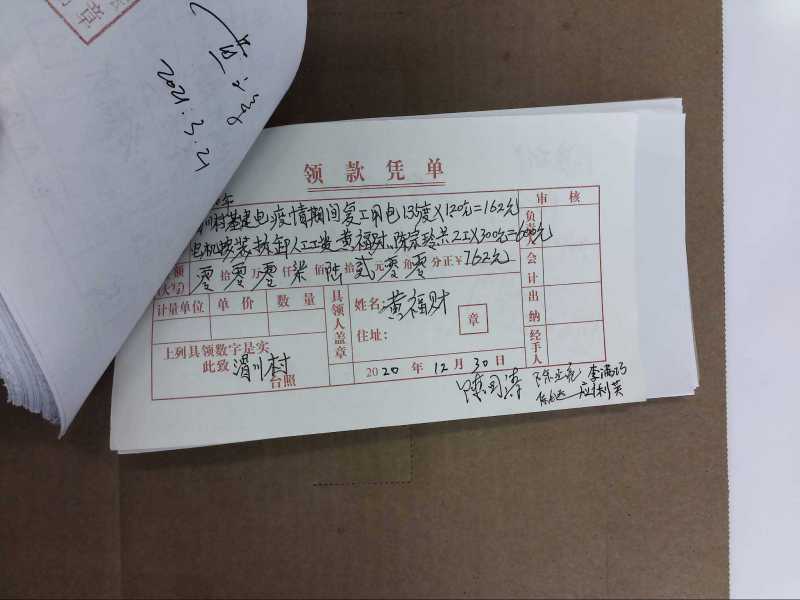 章
2021.3.21
领款凭单
川村基建电疫情期间复工用电135度X1.20元=162元
电机安装拆卸人工工资黄福财、陈宗玲共2工X300元=600元
额(大写) 零拾零万零仟柒佰陆拾贰元零角零分正￥762元
审核
负责人
会计
出纳
经手人
计量单位 单价 数量
上列具领数字是实
此致 渭川村 台照
具领人盖章
姓名:黄福财
住址:
章
2020年12月30日